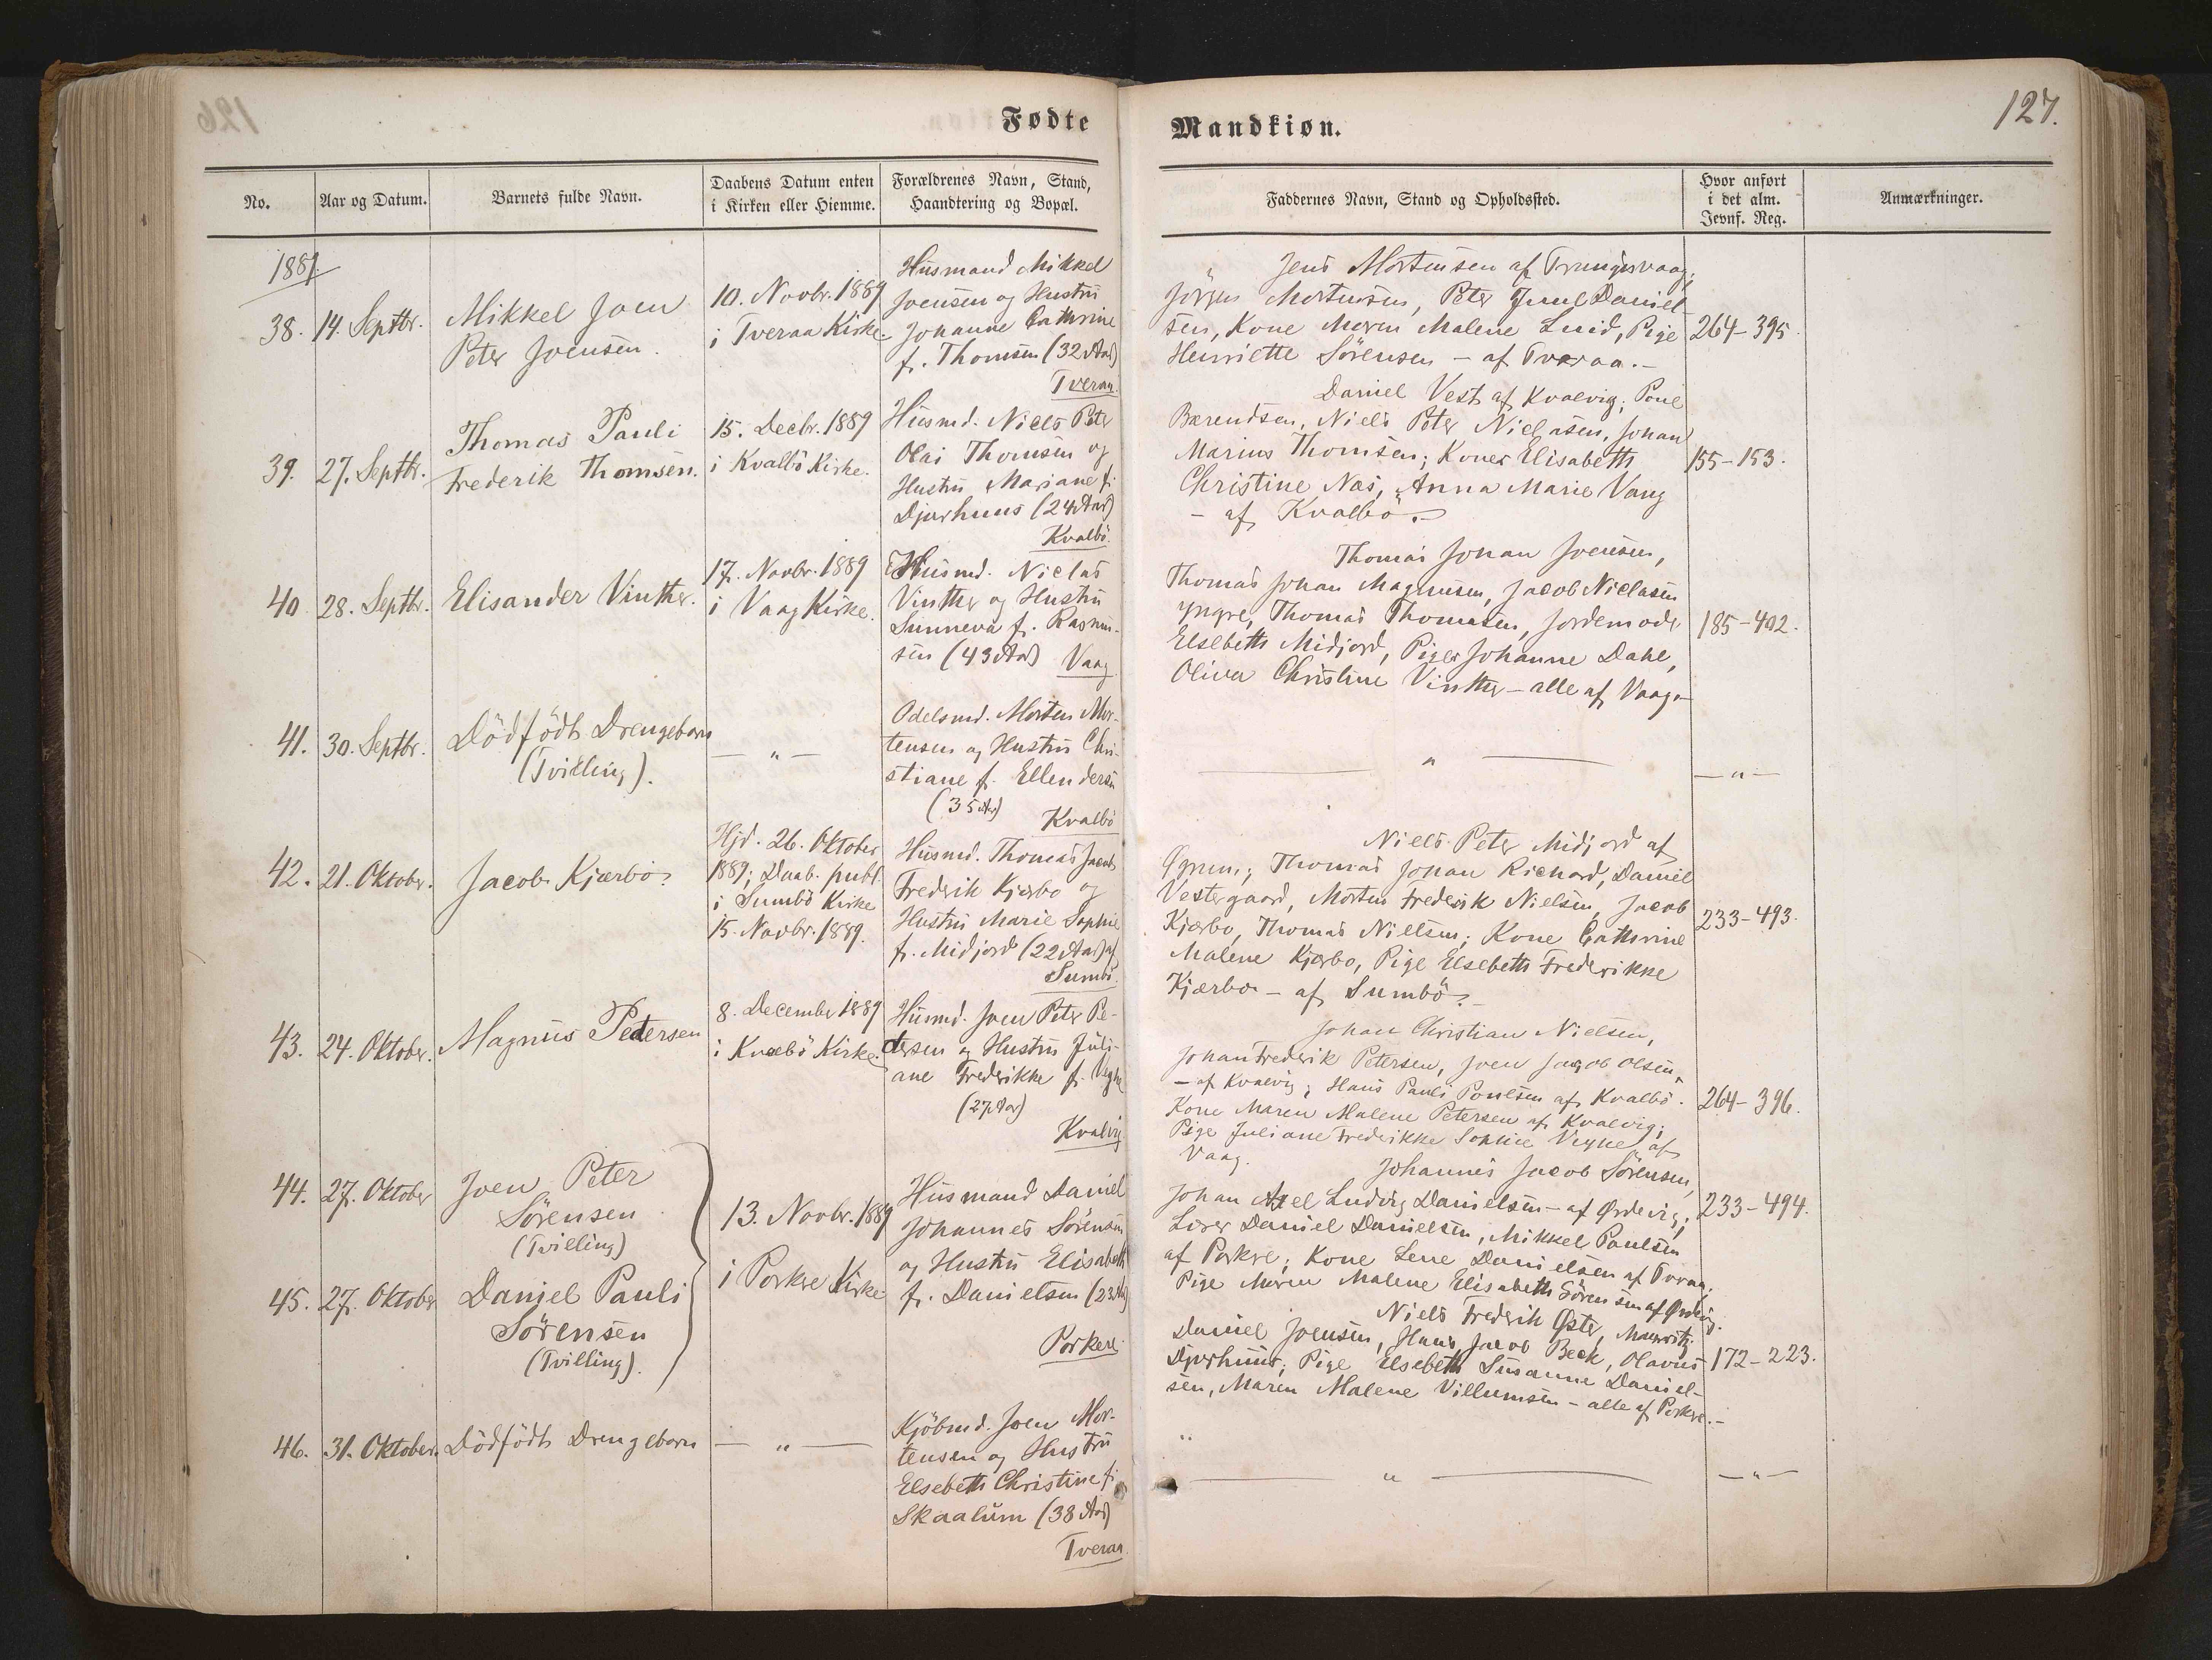 127.
Fødte
Mandkiøn.
No.
Aar og Datum.
Barnets fulde Navn.
Daabens Datum enten
i Kirken eller Hiemme.
Forældrenes Navn, Stand,
Haandtering og Bopæl.
Faddernes Navn, Stand og Opholdssted.
Hvor anført
i det alm.
Jevnf. Reg.
Anmærkninger.
1889.
38.
14. Septbr.
Mikkel Joen
Peter Joensen.
10. Novbr. 1889
i Tveraa Kirke.
Husmand Mikkel
Joensen og Hustru
Johanne Cathrine
f. Thomsen (32 Aar)
Tveraa.
Jens Mortensen af Trungisvaag;
Jörgen Mortensen, Peter Juul Daniel-
sen, Kone Maren Malene Luid, Pige
Henriette Sörensen - af Tveraa. -
264-395.
39.
27. Septbr.
Thomas Pauli
Frederik Thomsen.
15. Decbr. 1889
i Kvalbö Kirke.
Husmd. Niels Peter
Olai Thomsen og
Hustru Mariane f.
Djurhuus (24 Aar)
Kvalbö.
Daniel Vest af Kvalvig; Poul
Barendsen, Niels Peter Niclasen, Johan
Marius Thomsen; Koner Elisabeth
Christine Næs, Anna Marie Vang
- af Kvalbö. -
155-153.
40.
28. Septbr.
Elisander Vinther.
17. Novbr. 1889
i Vaag Kirke.
Husmd. Niclas
Vinther og Hustru
Sunneva f. Rasmus-
sen (43 Aar) Vaag
Thomas Johan Joensen,
Thomas Johan Magnusen, Jacob Niclasen
yngre, Thomas Thomasen, Jordemoder
Elsebeth Midjord, Piger Johanne Dahl,
Oliva Christine Vinther - alle af Vaag. -
185-402.
41.
30. Septbr.
Dödfödt Drengebarn
(Tvilling).
— " —
Odelsmd. Morten Mor-
tensen og Hustru Chri-
stiane f. Ellendersen
(35 Aar)
Kvalbö
— " —
— " —
42.
21. Oktober.
Jacob Kjærbo.
Hjd. 26. Oktober
1889; Daab. publ.
i Sumbö Kirke
15. Novbr. 1889.
Husmd. Thomas Jacob
Frederik Kjærbo og
Hustru Marie Sophie
f. Midjord (22 Aar) af
Sumbö.
Niels Peter Midjord af
Thomas Johan Richard, Daniel
Vestergaard, Morten Frederik Nielsen, Jacob
Kjærbo, Thomas Nielsen; Kone Cathrine
Malene Kjærbo, Pige Elsebeth Frederikke
Kjærbo - af Sumbö. -
233-493.
43.
24. Oktober.
Magnus Petersen
8. December 1889
i Kvalbö Kirke.
Husmd. Joen Peter Pe-
tersen og Hustru Juli-
ane Frederikke f. Veyhe
(27 Aar)
Kvalvig
Johan Christian Nielsen,
Johan Frederik Petersen, Joen Jacob Olsen,
- af Kvalvig; Hans Pauli Poulsen af Kvalbö.
Kone Maren Malene Petersen af Kvalvig;
Pige Juliane Frederikke Sophie Veyhe af
Vaag.
264-396.
44.
27. Oktober
Joen Peter
Sörensen
(Tvilling)
45.
27. Oktober
Daniel Pauli
Sörensen
(Tvilling).
13. Novbr. 1889
i Porkere Kirke
Husmand Daniel
Johannes Sörensen
og Hustru Elisabeth
f. Danielsen (23 Aar)
Porkere
Johannes Jacob Sörensen,
Johan Axel Ludvig Danielsen - af Ördevig;
Lærer Daniel Danielsen, Mikkel Paulsen
af Porkere; Kone Lene Danielsen af Tveraa;
Pige Maren Malene Elisabeth Sörensen af Ördevig.
233-494.
Niels Frederik Öster,
Daniel Joensen, Hans Jacob Beck, Olavus
Djurhuus; Pige Elsebeth Susanne Daniel-
sen, Maren Malene Villumsen - alle af Porkere. -
172-223.
46.
31. Oktober.
Dödfödt Drengebarn
— " —
Kjöbmd. Joen Mor-
tensen og Hustru
Elsebeth Christine f.
Skaalum (38 Aar)
Tveraa.
— " —
— " —